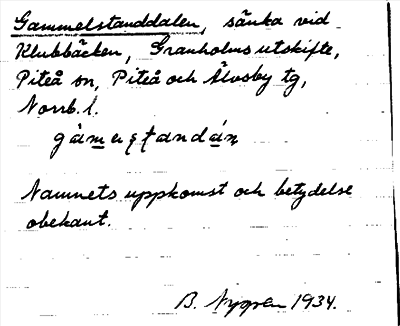 Gammelstanddalen, sänka vid
Klubbäcken, Granholms utskifte,
Piteå sn, Piteå och Älvsby tg,
Norrb. l.
Namnets uppkomst och betydelse
obekant.
B. Nygren 1934.